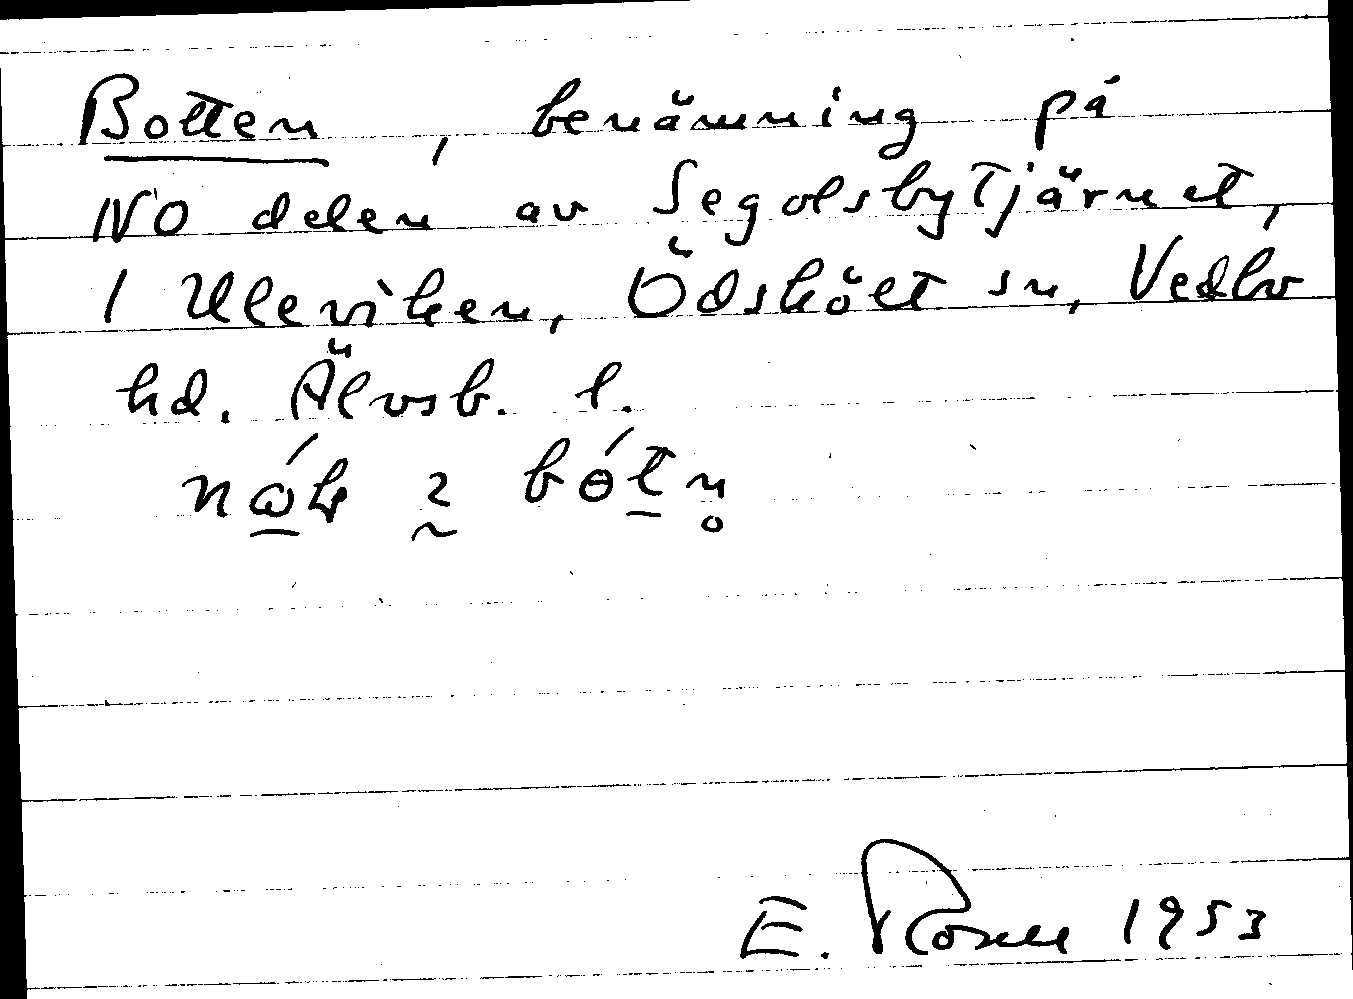 Botten, benämning på
NO delen av Segolsbytjärnet,
i Uleviken, Ödskölt sn, Vedbo
hd. Älvsb. l.
E. 1953